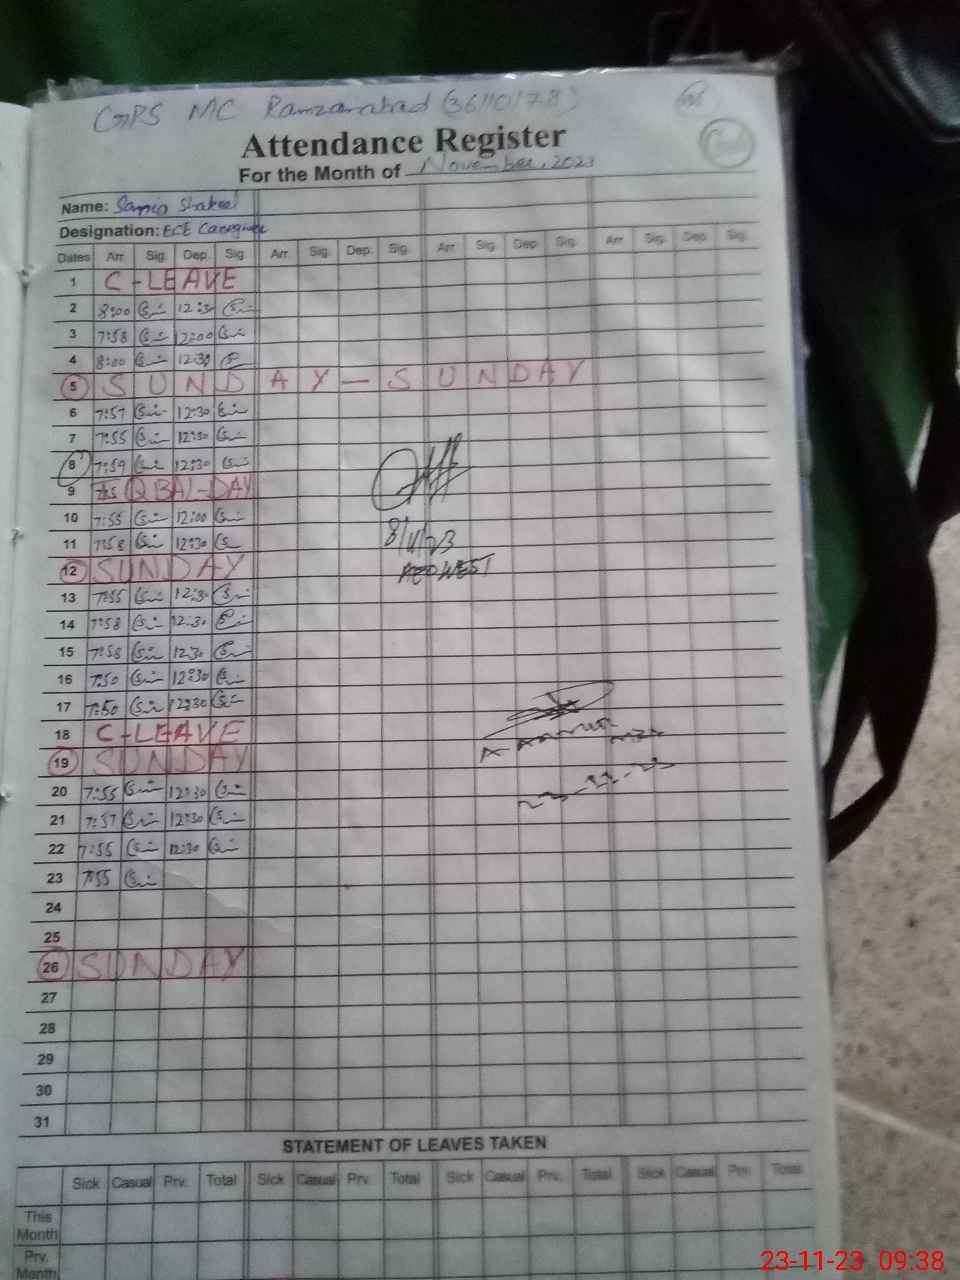 GPS MC Ramzanabad (36110178)
Attendance Register
For the Month of November, 2023
Name: Samia Shakeel
Designation: ECE Caregiver
Dates Arr. Sig. Dep. Sig. Arr. Sig. Dep. Sig. Arr. Sig. Dep. Sig. Arr. Sig. Dep. Sig.
1 C-LEAVE
2 8:00 12:30
3 7:58 12:00
4 8:00 12:30
5 SUNDAY — SUNDAY
6 7:57 12:30
7 7:55 12:30
8 7:59 12:30
9 IQBAL-DAY
10 7:55 12:00
11 7:58 12:30
8/11/23
12 SUNDAY
AEO WEST
13 7:55 12:30
14 7:58 12:30
15 7:58 12:30
16 7:50 12:30
17 7:50 12:30
18 C-LEAVE
19 SUNDAY
20 7:55 12:30
21 7:57 12:30
22 7:55 12:30
23 7:55
24
25
26 SUNDAY
27
28
29
30
31
STATEMENT OF LEAVES TAKEN
Sick Casual Prv. Total Sick Casual Prv. Total Sick Casual Prv. Total Sick Casual Prv. Total
This Month
Prv. Month
23-11-23 09:38